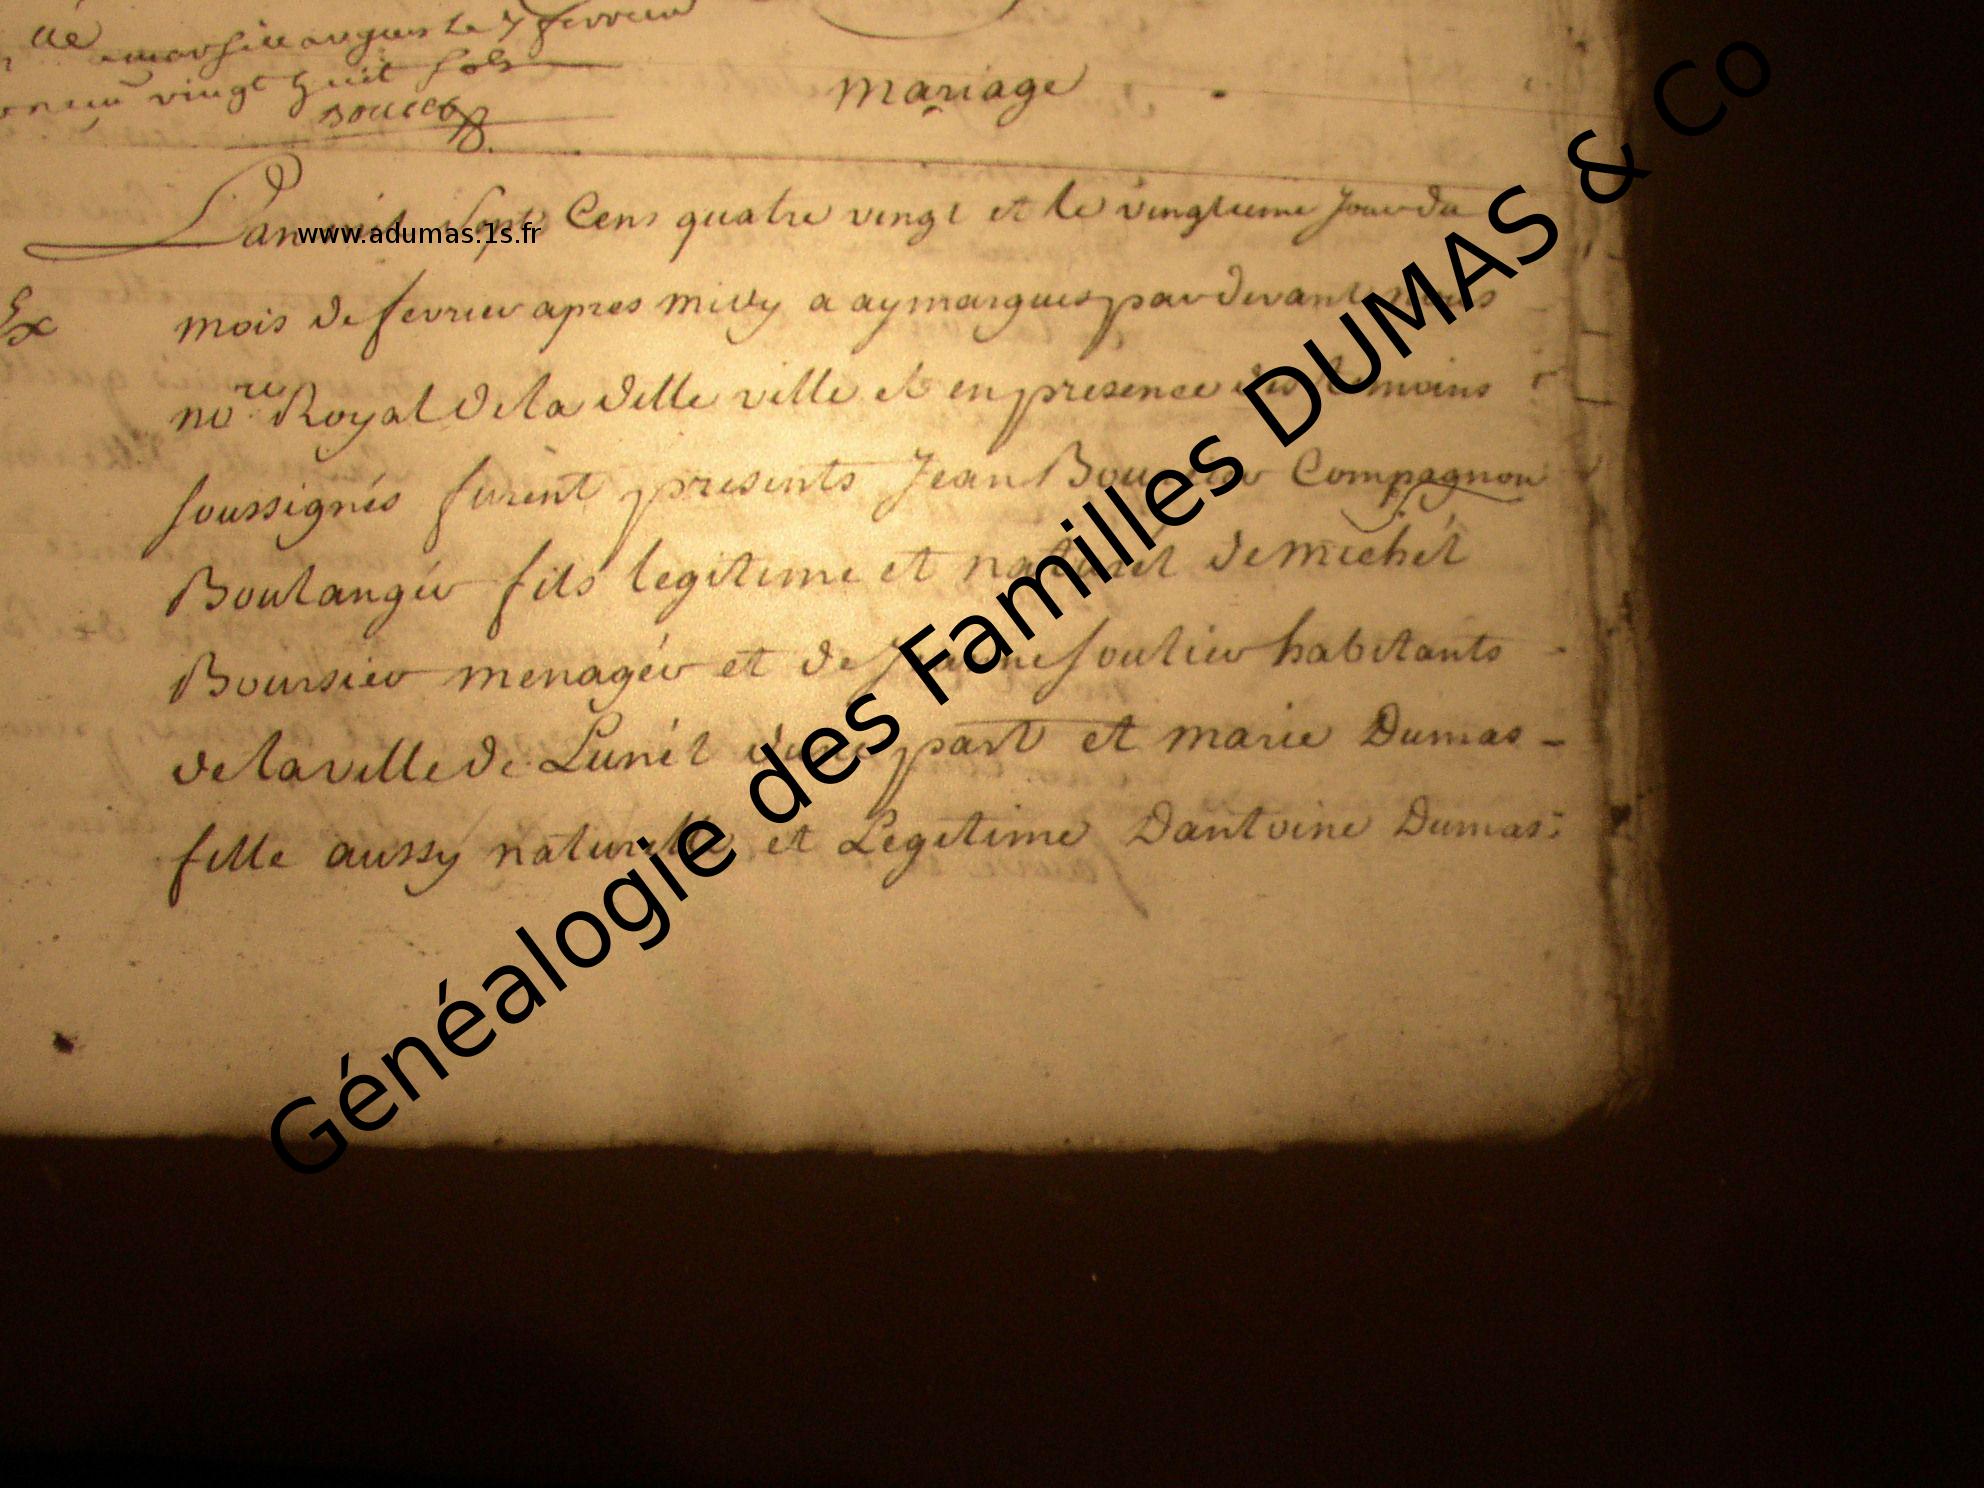 vingt huit sols
mariage
www.adumas.1s.fr
Lan mil sept Cens quatre vingt et le vingtieme jour du
mois de fevrier apres midy a aymargues pardevant nous
nore Royal de la ditte ville et en presence des temoins
soussignés furent presents Jean Boursier Compagnon
Boulangér fils legitime et naturel de michél
Boursier menagér et de Jeanne soulier habitants
de la ville de Lunél dune part et marie Dumas -
fille aussy naturelle et Legitime Dantoine Dumas
Ex
Généalogie des Familles DUMAS & Co